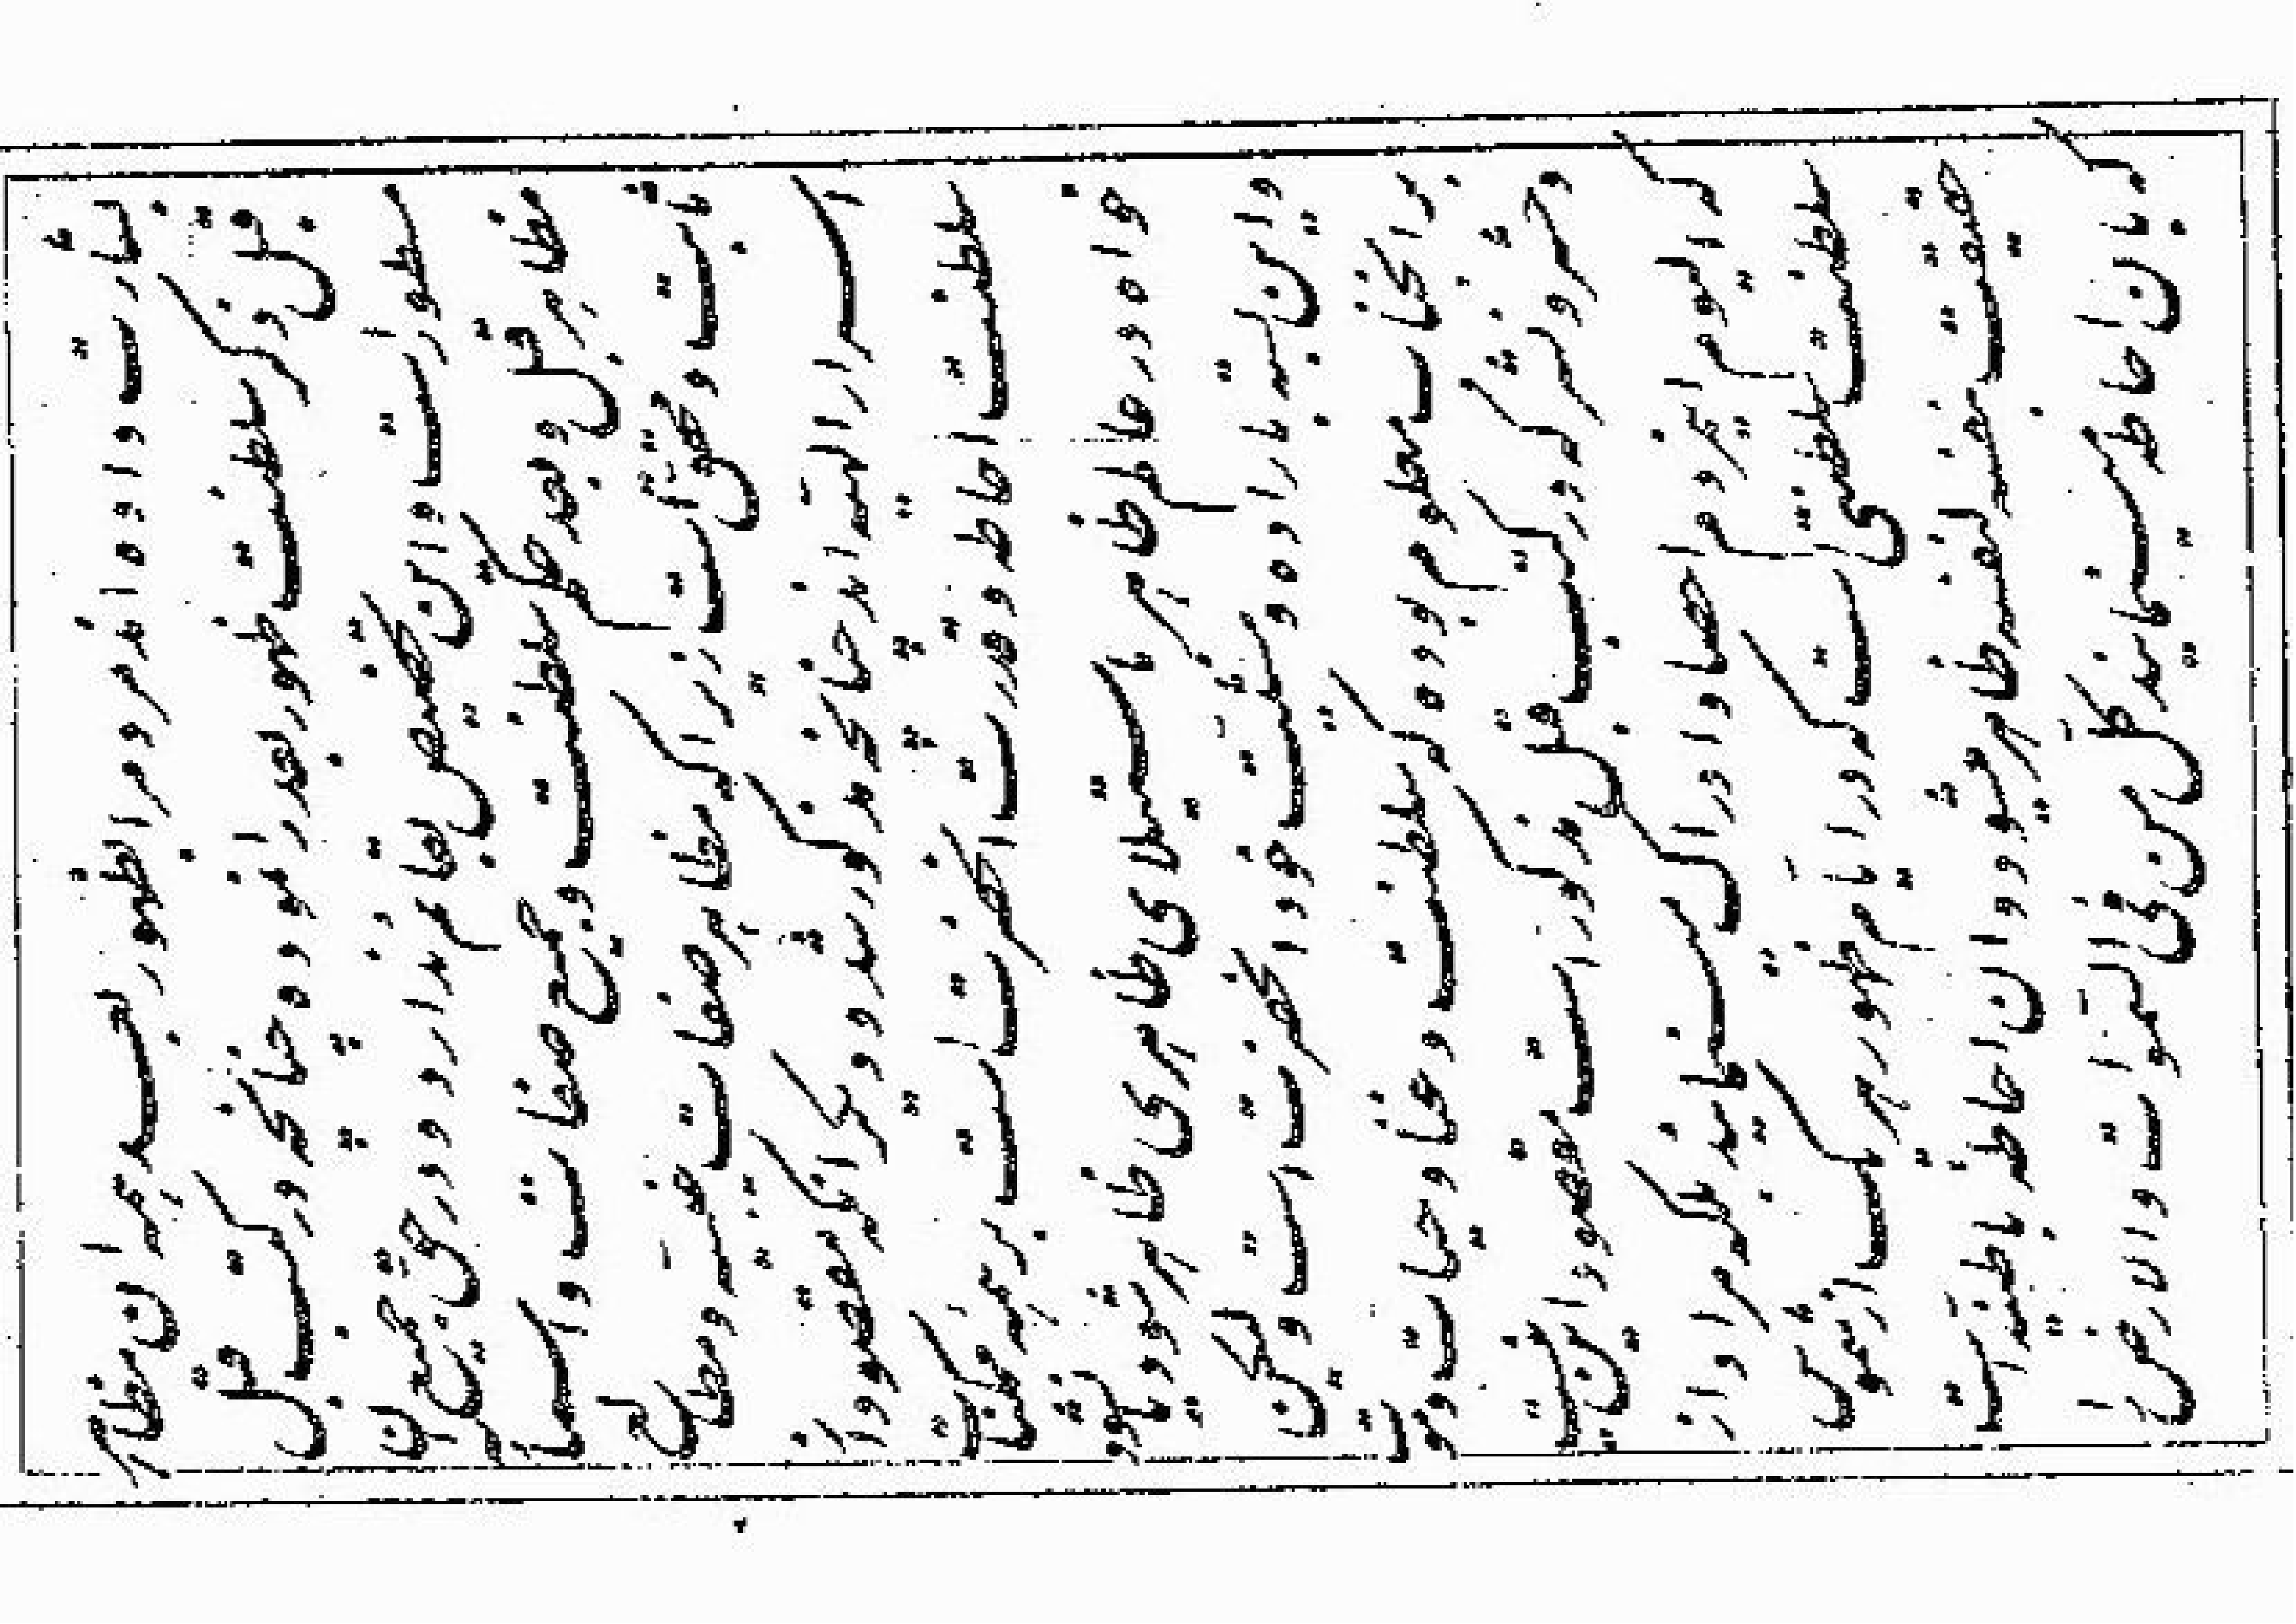 بشارت داده اند مردم را بظهور بعد همان مظاهر
قبل ذکر سلطنت ظهور بعد را نموده چنانچه در کتب قبل
مسطور است و این تخصیص بقائم ندارد و در حق جمیع آن
مظاهر قبل و بعد حکم سلطنت و جمیع صفات و اسما
ثابت و محقق است زیرا که مظاهر صفات غیبیه و مطالع
اسرار الهیه اند چنانچه مذکور شد و دیگر آنکه مقصود از
سلطنت احاطه و قدرت آنحضرت است بر همه ممکنات
خواه در عالم ظاهر باستیلای ظاهری ظاهر شود یا نشود
و این بسته باراده و مشیت خود آنحضرت است ولیکن
بر آنجناب معلوم بوده که سلطنت و غنا و حیات و موت
و حشر و نشر که در کتب قبل مذکور است مقصود این نیست
که الیوم این مردم احصا و ادراک مینمایند بلکه مراد از
سلطنت سلطنتی است که در ایام ظهور هر یک از شموس
حقیقت بنفسه لنفسه ظاهر میشود و آن احاطه باطنیه است
که بآن احاطه مینمایند کل من فی السموات و الارض را